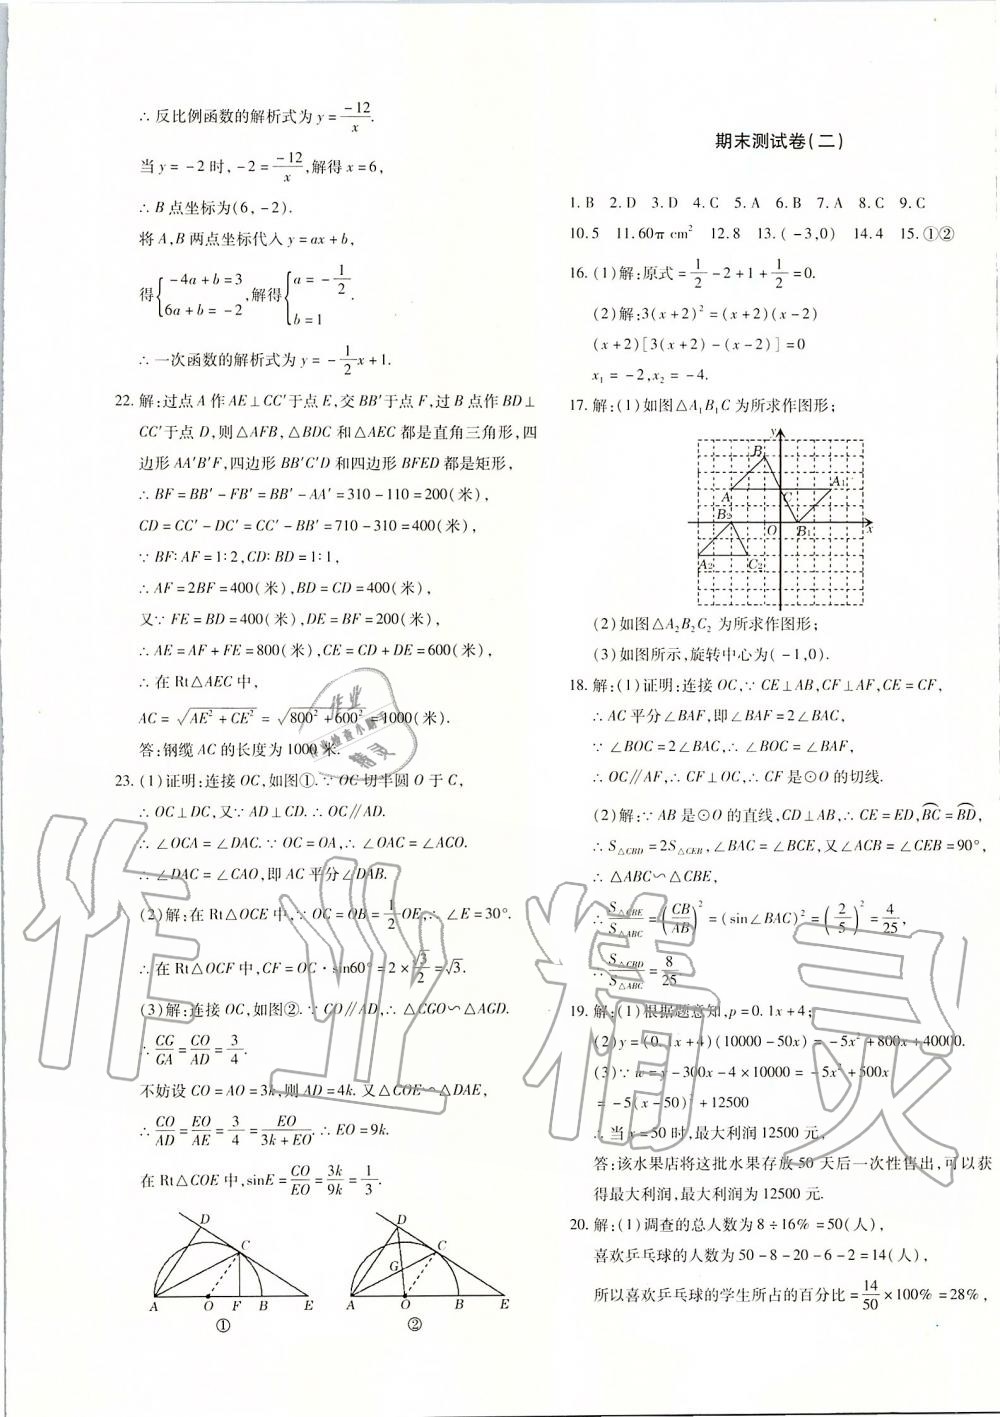 ∴ 反比例函数的解析式为 y = -12/x.
当 y = -2 时, -2 = -12/x, 解得 x = 6,
∴ B 点坐标为(6, -2).
将 A,B 两点坐标代入 y = ax + b,
得{-4a + b = 3 6a + b = -2, 解得{a = -1/2 b = 1.
∴ 一次函数的解析式为 y = -1/2x + 1.
22. 解:过点 A 作 AE⊥CC′于点 E,交 BB′于点 F,过 B 点作 BD⊥
CC′于点 D,则△AFB,△BDC 和△AEC 都是直角三角形,四
边形 AA′B′F,四边形 BB′C′D 和四边形 BFED 都是矩形,
∴ BF = BB′ - FB′ = BB′ - AA′ = 310 - 110 = 200(米),
CD = CC′ - DC′ = CC′ - BB′ = 710 - 310 = 400(米),
∵ BF∶AF = 1∶2,CD∶BD = 1∶1,
∴ AF = 2BF = 400(米),BD = CD = 400(米),
又∵ FE = BD = 400(米),DE = BF = 200(米),
∴ AE = AF + FE = 800(米),CE = CD + DE = 600(米),
∴ 在 Rt△AEC 中,
AC = √(AE² + CE²) = √(800² + 600²) = 1000(米).
答:钢缆 AC 的长度为 1000 米.
23. (1)证明:连接 OC,如图①.∵ OC 切半圆 O 于 C,
∴ OC⊥DC,又∵ AD⊥CD.∴ OC∥AD.
∴ ∠OCA = ∠DAC.∵ OC = OA,∴ ∠OAC = ∠ACO.
∴ ∠DAC = ∠CAO,即 AC 平分∠DAB.
(2)解:在 Rt△OCE 中,∵ OC = OB = 1/2 OE,∴ ∠E = 30°.
∴ 在 Rt△OCF 中,CF = OC · sin60° = 2 × √3/2 = √3.
(3)解:连接 OC,如图②.∵ CO∥AD,∴ △CGO∽△AGD.
∴ CG/GA = CO/AD = 3/4.
不妨设 CO = AO = 3k,则 AD = 4k. 又△COE∽△DAE,
∴ CO/AD = EO/AE = 3/4 = EO/(3k + EO).∴ EO = 9k.
在 Rt△COE 中,sinE = CO/EO = 3k/9k = 1/3.
D C A O F B E
①
D C G A O B E
②
期末测试卷(二)
1. B 2. D 3. D 4. C 5. A 6. B 7. A 8. C 9. C
10. 5 11. 60π cm² 12. 8 13. ( -3,0) 14. 4 15. ①②
16. (1)解:原式 = 1/2 - 2 + 1 + 1/2 = 0.
(2)解:3(x + 2)² = (x + 2)(x - 2)
(x + 2)[3(x + 2) - (x - 2)] = 0
x₁ = -2,x₂ = -4.
17. 解:(1)如图△A₁B₁C 为所求作图形;
y B A₁ A C B₂ O B₁ x A₂ C₂
(2)如图△A₂B₂C₂ 为所求作图形;
(3)如图所示,旋转中心为( -1,0).
18. 解:(1)证明:连接 OC,∵ CE⊥AB,CF⊥AF,CE = CF,
∴ AC 平分∠BAF,即∠BAF = 2∠BAC,
∵ ∠BOC = 2∠BAC,∴ ∠BOC = ∠BAF,
∴ OC∥AF,∴ CF⊥OC,∴ CF 是⊙O 的切线.
(2)解:∵ AB 是⊙O 的直线,CD⊥AB,∴ CE = ED,BC⌒ = BD⌒,
∴ S△CBD = 2S△CEB,∠BAC = ∠BCE,又∠ACB = ∠CEB = 90°,
∴ △ABC∽△CBE,
∴ S△CBE/S△ABC = (CB/AB)² = (sin∠BAC)² = (2/5)² = 4/25,
∴ S△CBD/S△ABC = 8/25
19. 解:(1)根据题意知,p = 0.1x + 4;
(2)y = (0.1x + 4)(10000 - 50x) = -5x² + 800x + 40000.
(3)∵ w = y - 300x - 4 × 10000 = -5x² + 500x
= -5(x - 50)² + 12500
∴ 当 x = 50 时,最大利润 12500 元,
答:该水果店将这批水果存放 50 天后一次性售出,可以获
得最大利润,最大利润为 12500 元.
20. 解:(1)调查的总人数为 8 ÷ 16% = 50(人),
喜欢乒乓球的人数为 50 - 8 - 20 - 6 - 2 = 14(人),
所以喜欢乒乓球的学生所占的百分比 = 14/50 × 100% = 28%,
作业精灵
作业
作业检查小助手
精灵